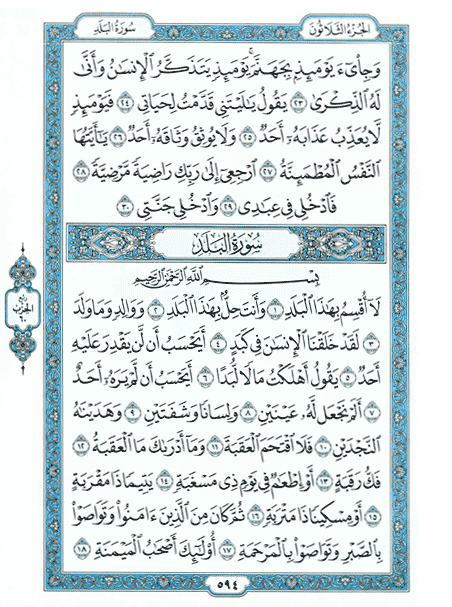 الجزء الثلاثون
سورة البلد
وَجِاْىٓءَ يَوْمَئِذٍۭ بِجَهَنَّمَۚ يَوْمَئِذٍ يَتَذَكَّرُ ٱلْإِنسَٰنُ وَأَنَّىٰ
لَهُ ٱلذِّكْرَىٰ ٢٣ يَقُولُ يَٰلَيْتَنِى قَدَّمْتُ لِحَيَاتِى ٢٤ فَيَوْمَئِذٍ
لَّا يُعَذِّبُ عَذَابَهُۥٓ أَحَدٌ ٢٥ وَلَا يُوثِقُ وَثَاقَهُۥٓ أَحَدٌ ٢٦ يَٰٓأَيَّتُهَا
ٱلنَّفْسُ ٱلْمُطْمَئِنَّةُ ٢٧ ٱرْجِعِىٓ إِلَىٰ رَبِّكِ رَاضِيَةً مَّرْضِيَّةً ٢٨
فَٱدْخُلِى فِى عِبَٰدِى ٢٩ وَٱدْخُلِى جَنَّتِى ٣٠
سورة البلد
بِسْمِ ٱللَّهِ ٱلرَّحْمَٰنِ ٱلرَّحِيمِ
لَآ أُقْسِمُ بِهَٰذَا ٱلْبَلَدِ ١ وَأَنتَ حِلٌّۢ بِهَٰذَا ٱلْبَلَدِ ٢ وَوَالِدٍ وَمَا وَلَدَ
٣ لَقَدْ خَلَقْنَا ٱلْإِنسَٰنَ فِى كَبَدٍ ٤ أَيَحْسَبُ أَن لَّن يَقْدِرَ عَلَيْهِ
أَحَدٌ ٥ يَقُولُ أَهْلَكْتُ مَالًا لُّبَدًا ٦ أَيَحْسَبُ أَن لَّمْ يَرَهُۥٓ أَحَدٌ
٧ أَلَمْ نَجْعَل لَّهُۥ عَيْنَيْنِ ٨ وَلِسَانًا وَشَفَتَيْنِ ٩ وَهَدَيْنَٰهُ
ٱلنَّجْدَيْنِ ١٠ فَلَا ٱقْتَحَمَ ٱلْعَقَبَةَ ١١ وَمَآ أَدْرَىٰكَ مَا ٱلْعَقَبَةُ ١٢
فَكُّ رَقَبَةٍ ١٣ أَوْ إِطْعَٰمٌ فِى يَوْمٍ ذِى مَسْغَبَةٍ ١٤ يَتِيمًا ذَا مَقْرَبَةٍ
١٥ أَوْ مِسْكِينًا ذَا مَتْرَبَةٍ ١٦ ثُمَّ كَانَ مِنَ ٱلَّذِينَ ءَامَنُوا۟ وَتَوَاصَوْا۟
بِٱلصَّبْرِ وَتَوَاصَوْا۟ بِٱلْمَرْحَمَةِ ١٧ أُو۟لَٰٓئِكَ أَصْحَٰبُ ٱلْمَيْمَنَةِ ١٨
ربع
الحزب
٦٠
٥٩٤